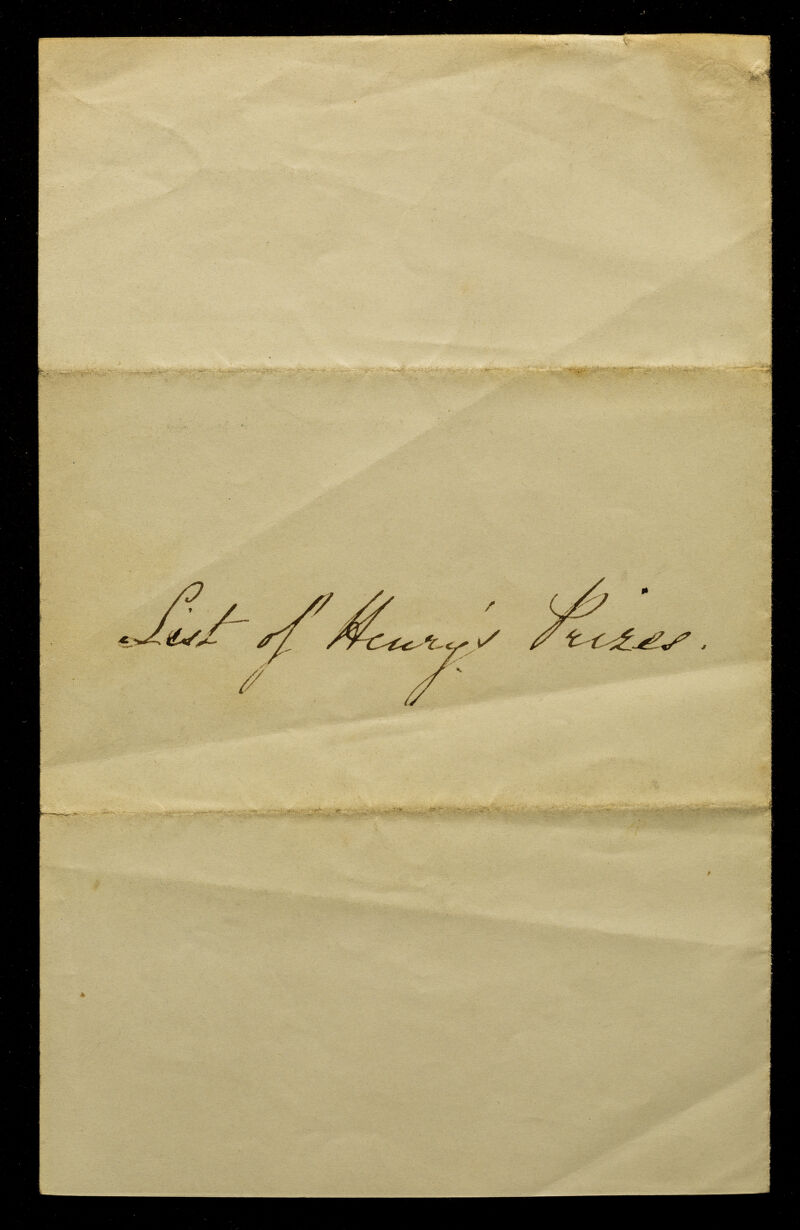 List of Henry's Prizes.